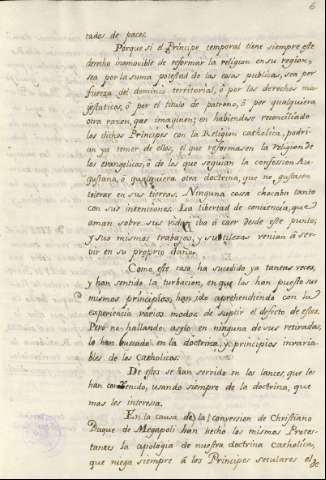 6
tades de paces.
Porque si el Principe temporal tiene siempre este
derecho inamovible de reformar la religion en su region,
sea por la suma potestad de las cosas publicas, sea por
fuerza del dominio territorial, ó por los derechos ma-
gestaticos, ó por el titulo de patrono, ó por qualquiera
otra razon, que imaginen; en habiendose reconciliado
los dichos Principes con la Religion catholica, podri-
an ya temer de ellos, el que reformasen la religion de
los evangelicos, ó de los que seguian la confession Au-
gustana, ó qualquiera otra doctrina, que no gustasen
tolerar en sus tierras. Ninguna cosa chocaba tanto
con sus intenciones. La libertad de conciencia, que
aman sobre sus vidas iba á caer desde este punto;
y sus mismos trabajos, y sutilezas venian á ser-
vir en su proprio daño.
Como este caso ha sucedido ya tantas veces,
y han sentido la turbacion, en que los han puesto sus
mismos principios, han ido aprehendiendo con la
experiencia varios modos de suplir el defecto de estos.
Pero no hallando asylo en ninguna de sus retiradas,
lo han buscado en la doctrina, y principios invaria-
bles de los Catholicos.
De estos se han servido en los lances, que les
han convenido, usando siempre de la doctrina, que
mas les interesa.
En la causa de la conversion de Christiano
Duque de Megapoli han hecho los mismos Protes-
tantes la apologia de nuestra doctrina catholica,
que niega siempre á los Principes seculares el de